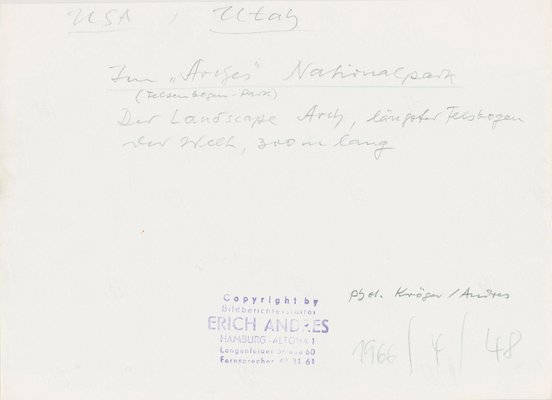 USA, Utah
Im „Arches" Nationalpark
(Felsenbogen-Park)
Der Landscape Arch, längster Felsbogen
der Welt, 300m lang
Copyright by
Bildberichterstatter
ERICH ANDRES
HAMBURG-ALTONA 1
Langenfelder Straße 60
Fernsprecher 43 31 61
phot. Kröger/Andres
1966 / 4 / 48